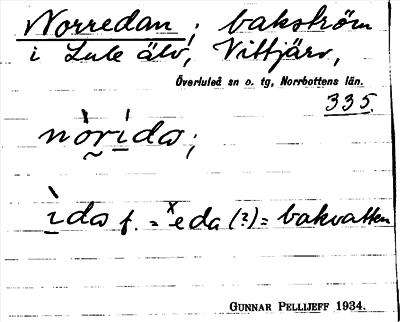 Norredan; bakström
i Lule älv, Vittjärv,
Överluleå sn o. tg, Norrbottens län.
335.
nòrìda;
ìda f. = ˣeda (?) = bakvatten
GUNNAR PELLIJEFF 1934.